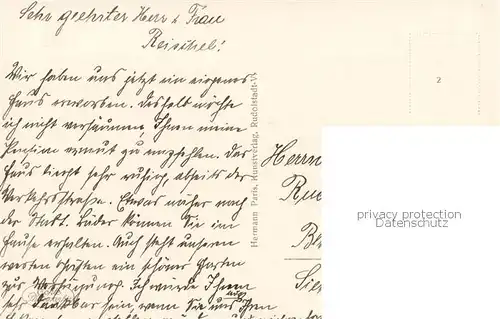 Sehr geehrter Herr u. Frau
Reischel!
Wir haben uns jetzt ein eigenes
Haus erworben. Deshalb möchte
ich nicht versäumen, Ihnen meine
Pension erneut zu empfehlen. Das
Haus liegt sehr ruhig, abseits der
Verkehrsstraße. Etwas näher nach
der Stadt. Bäder können Sie im
Hause erhalten. Auch steht unseren
werten Gästen ein schöner Garten
zur Verfügung. Ich würde Ihnen
sehr dankbar sein wenn Sie uns
Hermann Paris, Kunstverlag, Rudolstadt-V.
Herrn
2
privacy protection
Datenschutz